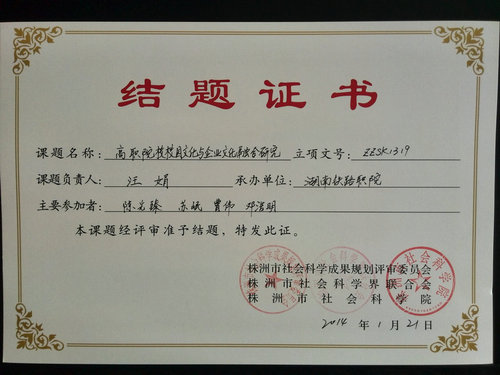 结题证书
课题名称：高职院校校园文化与企业文化融合研究 立项文号：ZZSK1319
课题负责人：汪娟 承办单位：湖南铁路职院
主要参加者：陈 苏岷 曹伟 邓治明
本课题经评审准予结题，特发此证。
株洲市社会科学成果规划评审委员会
株洲市社会科学界联合会
株洲市社会科学院
2014年1月21日